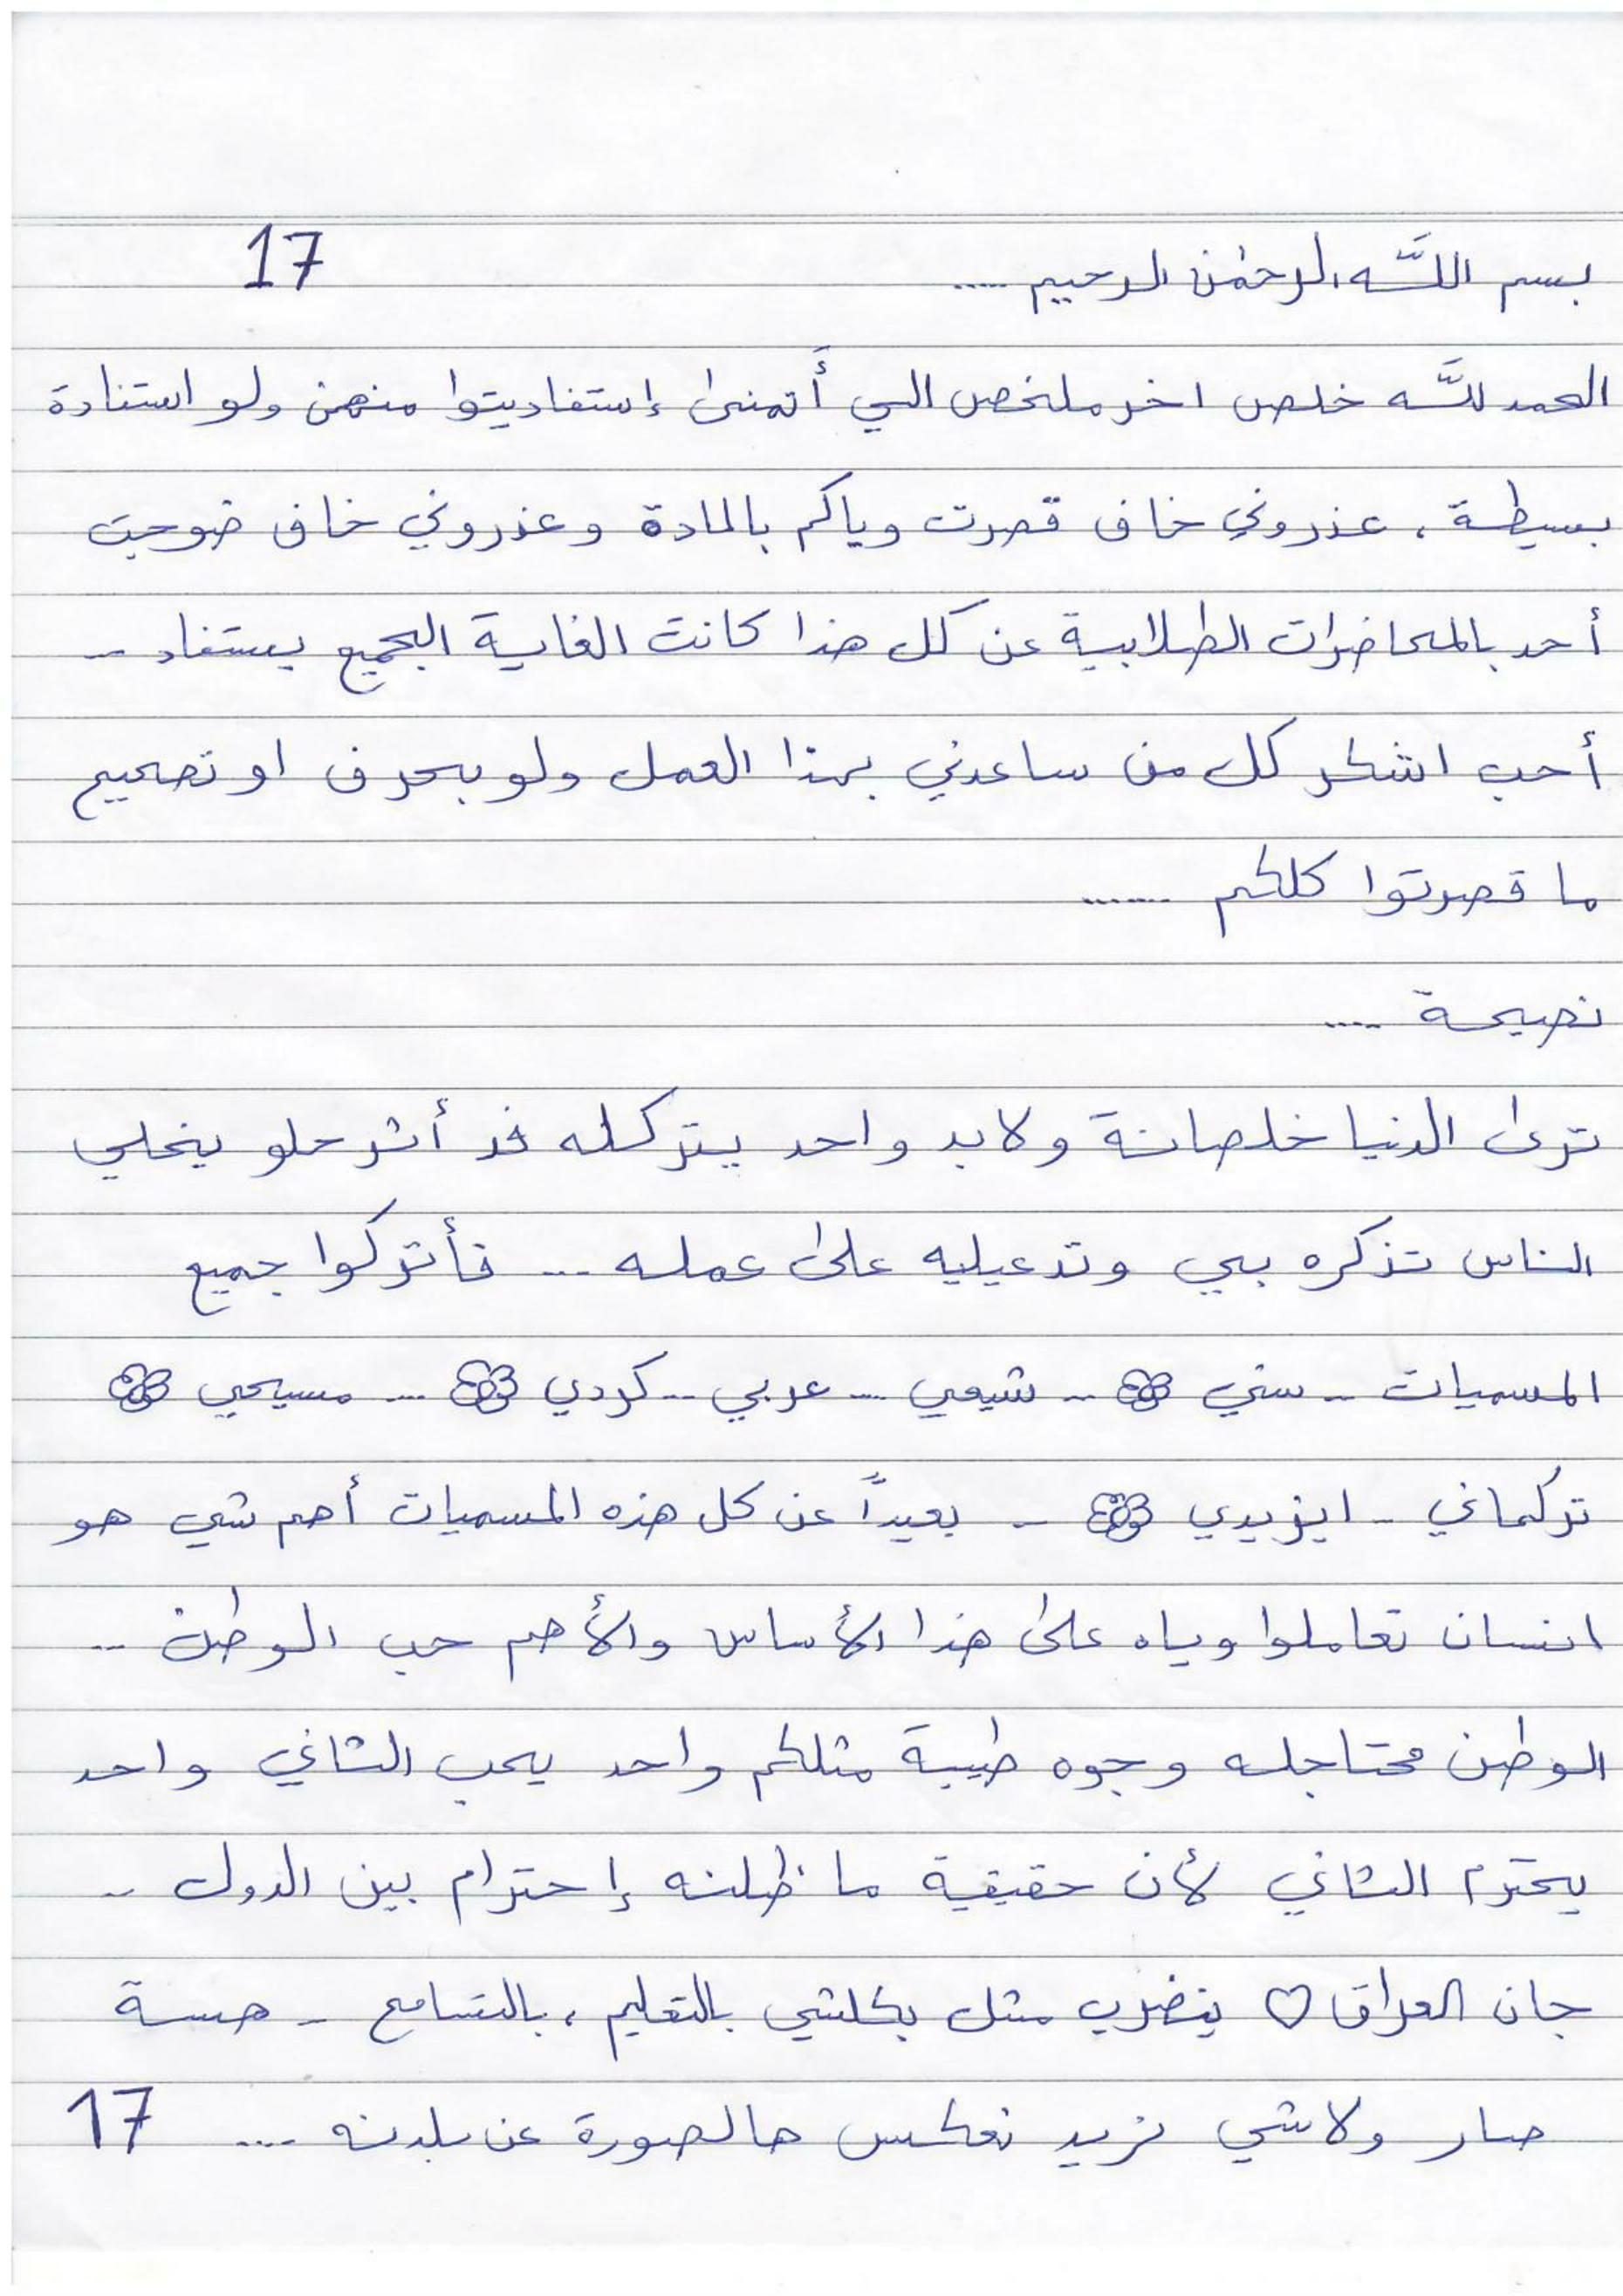 17
بسم اللّٰه الرحمٰن الرحيم .....
الحمد للّٰه خلص اخر ملخص الي أَتمنىٰ إستفاديتوا منهن ولو استفادة
بسيطة ، عذروني خاف قصرت وياكم بالمادة وعذروني خاف ضوجت
أحد بالمحاضرات الطلابية عن كل هذا كانت الغاية الجميع يستفاد ...
أحب اشكر كل من ساعدني بهذا العمل ولو بحرف او تصحيح
ما قصرتوا كلكم .......
نصيحة ....
ترىٰ الدنيا خلصانة ولابد واحد يتركله فد أثر حلو يخلي
الناس تذكره بي وتدعيليه علىٰ عمله ... فأتركوا جميع
المسميات .. سني .. شيعي ... عربي .. كردي ... مسيحي
تركماني - ايزيدي - بعيداً عن كل هذه المسميات أهم شي هو
انسان تعاملوا وياه علىٰ هذا الأساس والأهم حب الوطن ..
الوطن محتاجله وجوه طيبة مثلكم واحد يحب الثاني واحد
يحترم الثاني لأن حقيقة ما ظلنه إحترام بين الدول ..
جان العراق ♡ ينضرب مثل بكلشي بالتعليم ، بالتسامح - هسة
صار ولاشي نريد نعكس هالصورة عن بلدنه .... 17